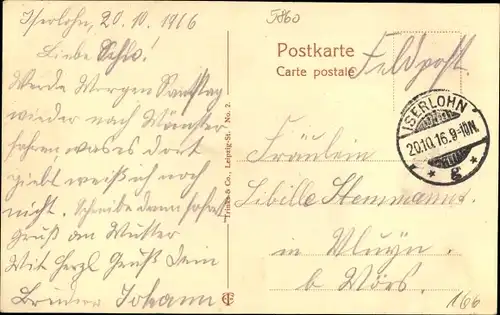 Iserlohn, 20.10.1916
Liebe
Werde Morgen Samstag
wieder nach Münster
fahren, was es dort
giebt weiß ich noch
nicht. Schreibe dann sofort
Gruß an Mutter
Mit Herzl Gruß Dein
Bruder Johann
Trinks & Co., Leipzig-St. No. 2.
Postkarte
Carte postale
Feldpost.
ISERLOHN
20.10.16.9-10N.
* * g *
Fräulein
Sibille
in Vluyn.
b Mörs.
166